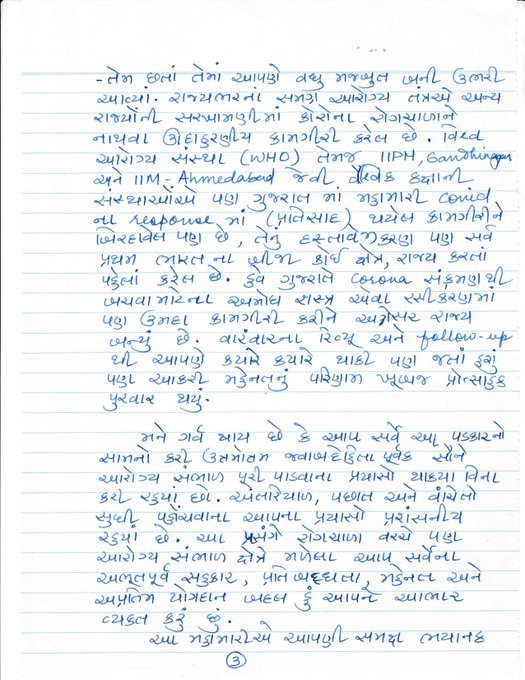 - તેમ છતાં તેમાં આપણે વધુ મજબુત બની ઉભરી
આવ્યાં. રાજ્યભરનાં સમગ્ર આરોગ્ય તંત્રએ અન્ય
રાજ્યોની સરખામણીમાં કોરોના રોગચાળાને
નાથવા ઊદાહરણીય કામગીરી કરેલ છે. વિશ્વ
આરોગ્ય સંસ્થા (WHO) તેમજ IIPH, Gandhinagar
અને IIM-Ahmedabad જેવી વૈશ્વિક કક્ષાની
સંસ્થાઓએ પણ ગુજરાત માં મહામારી Covid
ના response માં (પ્રતિસાદ) થયેલ કામગીરીને
બિરદાવેલ પણ છે, તેનું દસ્તાવેજીકરણ પણ સર્વ
પ્રથમ ભારત ના બીજા કોઈ ક્ષેત્ર, રાજ્ય કરતાં
પહેલાં કરેલ છે. હવે ગુજરાતે Corona સંક્રમણ થી
બચવા માટેના અમોઘ શસ્ત્ર એવા રસીકરણમાં
પણ ઉમદા કામગીરી કરીને અગ્રેસર રાજ્ય
બન્યું છે. વારંવારના રિવ્યૂ અને follow-up
થી આપણે ક્યારે ક્યારે થાકી પણ જતાં હશું
પણ આકરી મહેનતનું પરિણામ ખૂબજ પ્રોત્સાહક
પુરવાર થયું.
મને ગર્વ થાય છે કે આપ સર્વે આ પડકારનો
સામનો કરી ઉત્તમોતમ જવાબદેહિતા પૂર્વક સૌને
આરોગ્ય સંભાળ પૂરી પાડવાના પ્રયાસો થાક્યા વિના
કરી રહ્યાં છો. અંતરિયાળ, પછાત અને વંચિતો
સુધી પહોંચવાના આપના પ્રયાસો પ્રશંસનીય
રહ્યાં છે. આ પ્રસંગે રોગચાળા વચ્ચે પણ
આરોગ્ય સંભાળ ક્ષેત્રે મળેલા આપ સર્વેના
અભૂતપૂર્વ સહકાર, પ્રતિબદ્ધતા, મહેનત અને
અપ્રતિમ યોગદાન બદલ હું આપને આભાર
વ્યક્ત કરું છું.
આ મહામારીએ આપણી સમક્ષ ભયાનક
3